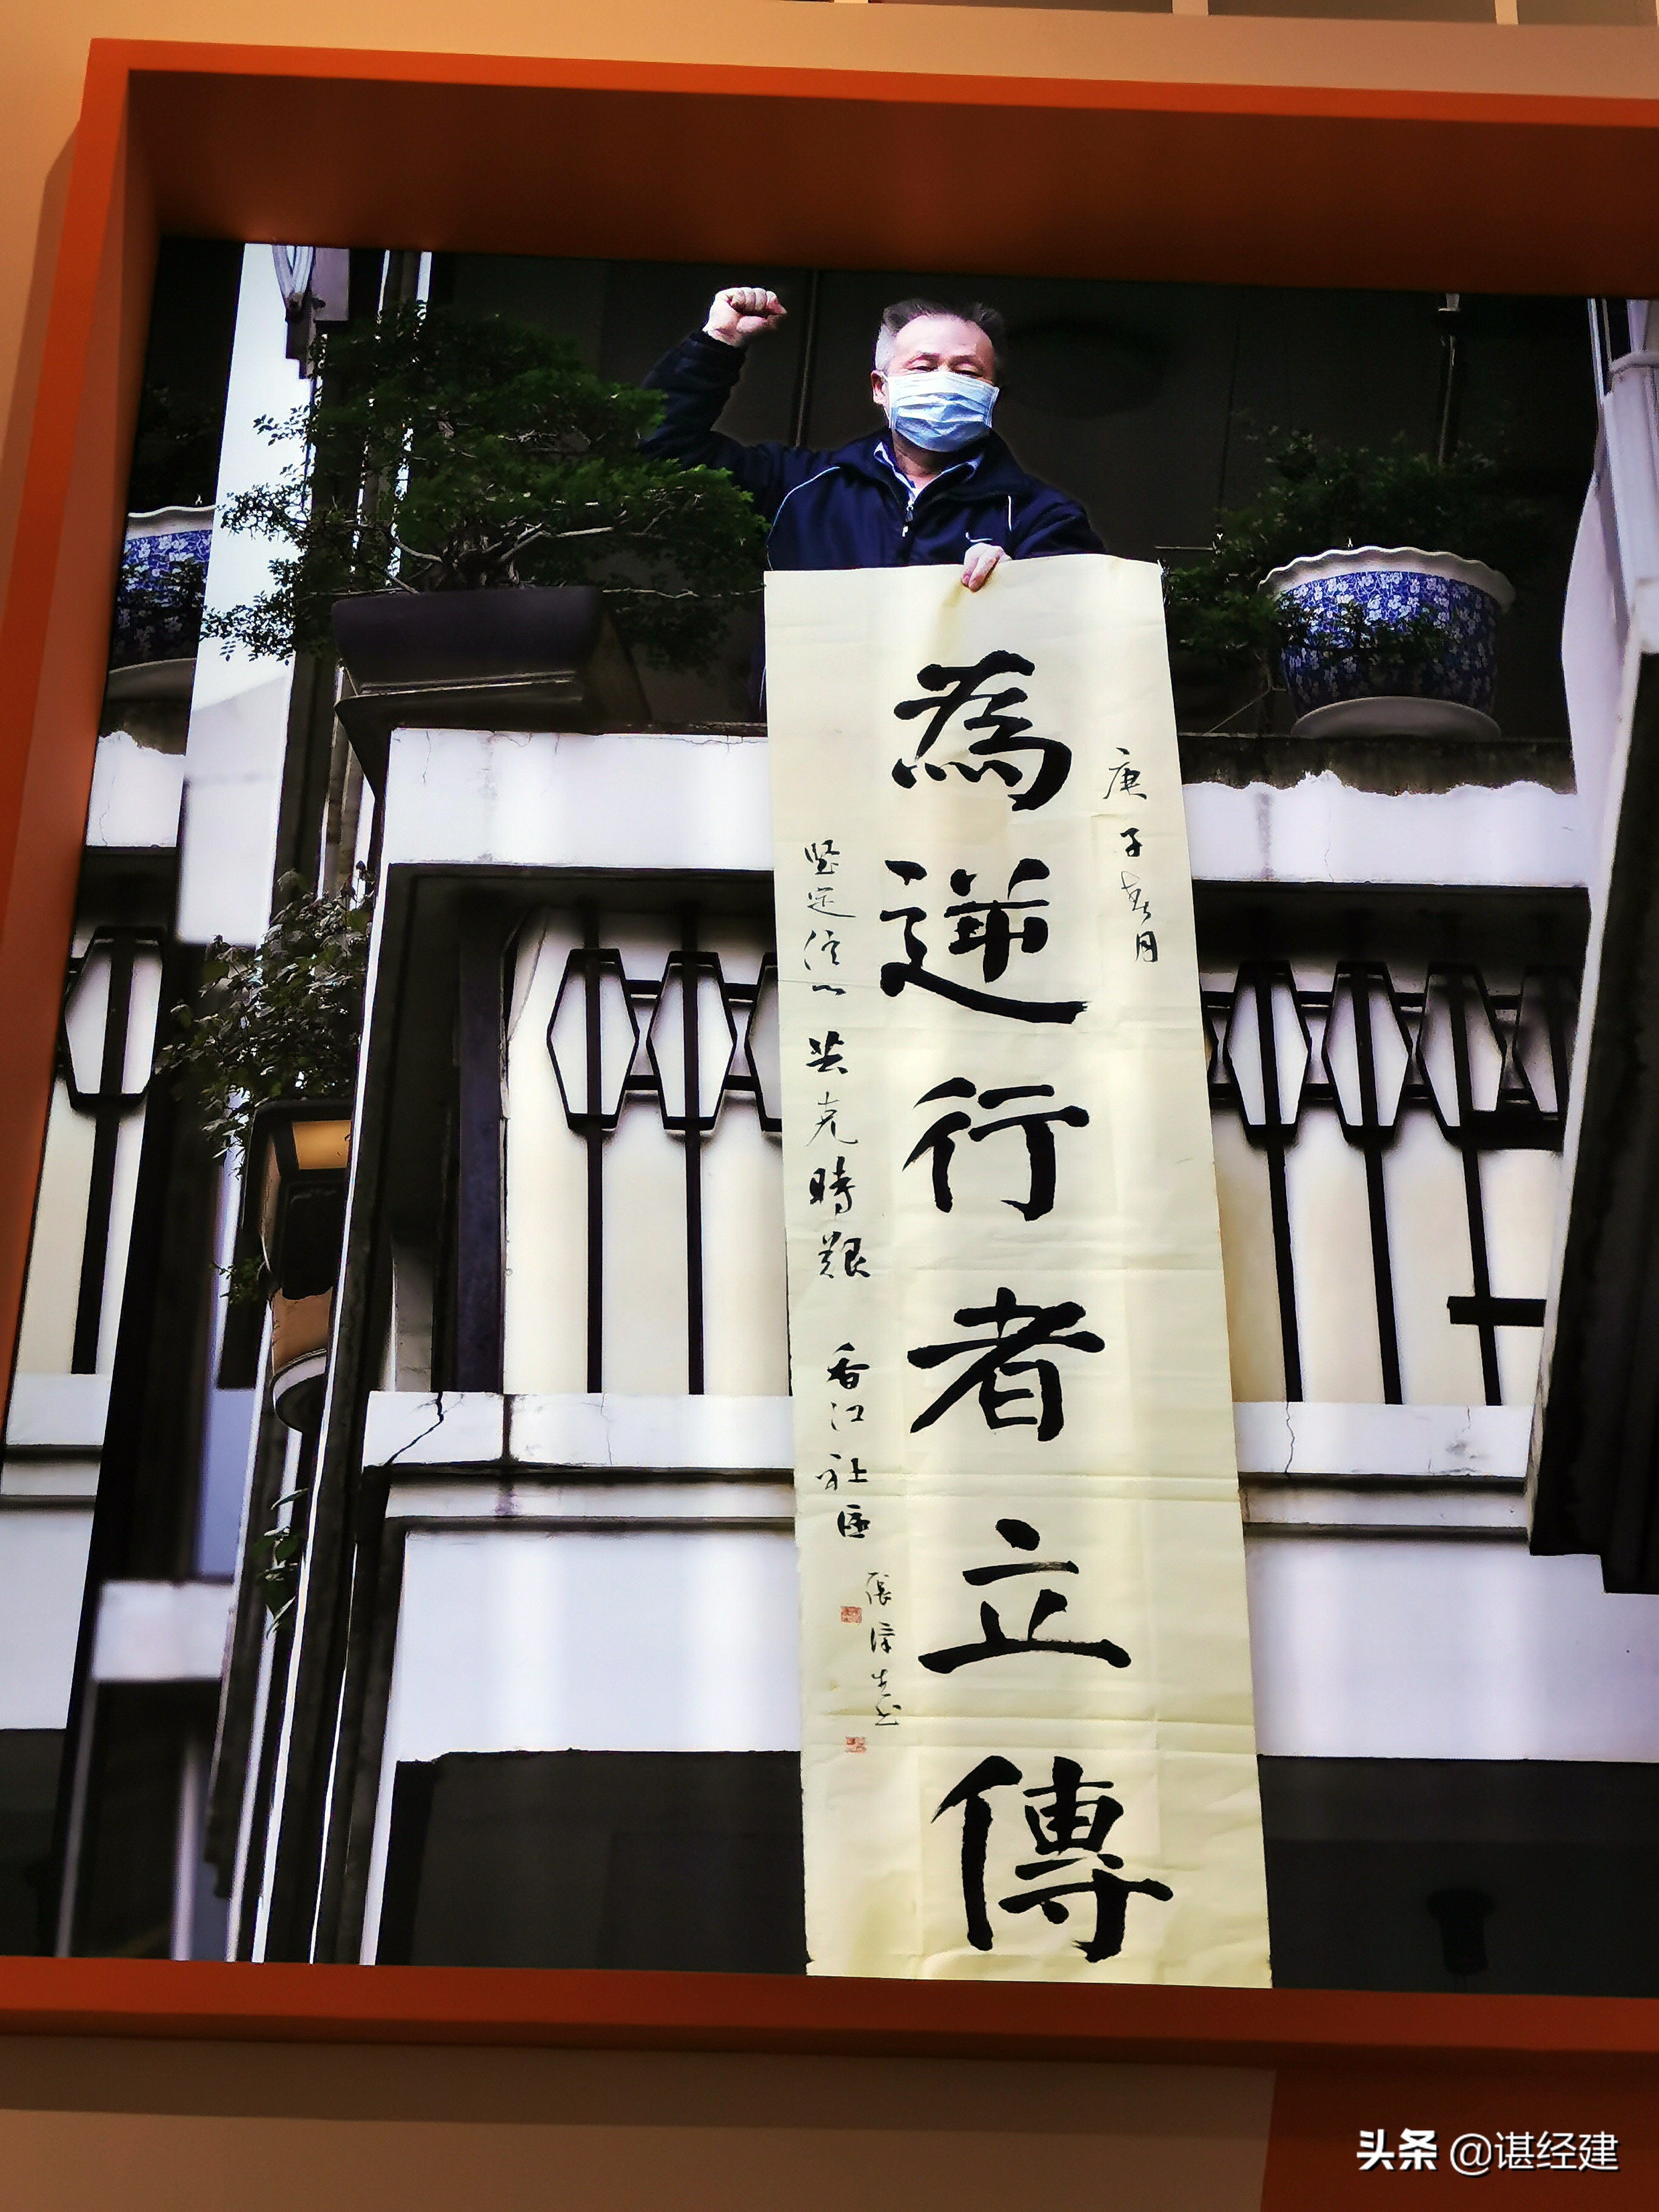 庚子春月
為逆行者立傳
坚定信心共克時艱 香江社區
張
头条 @谌经建